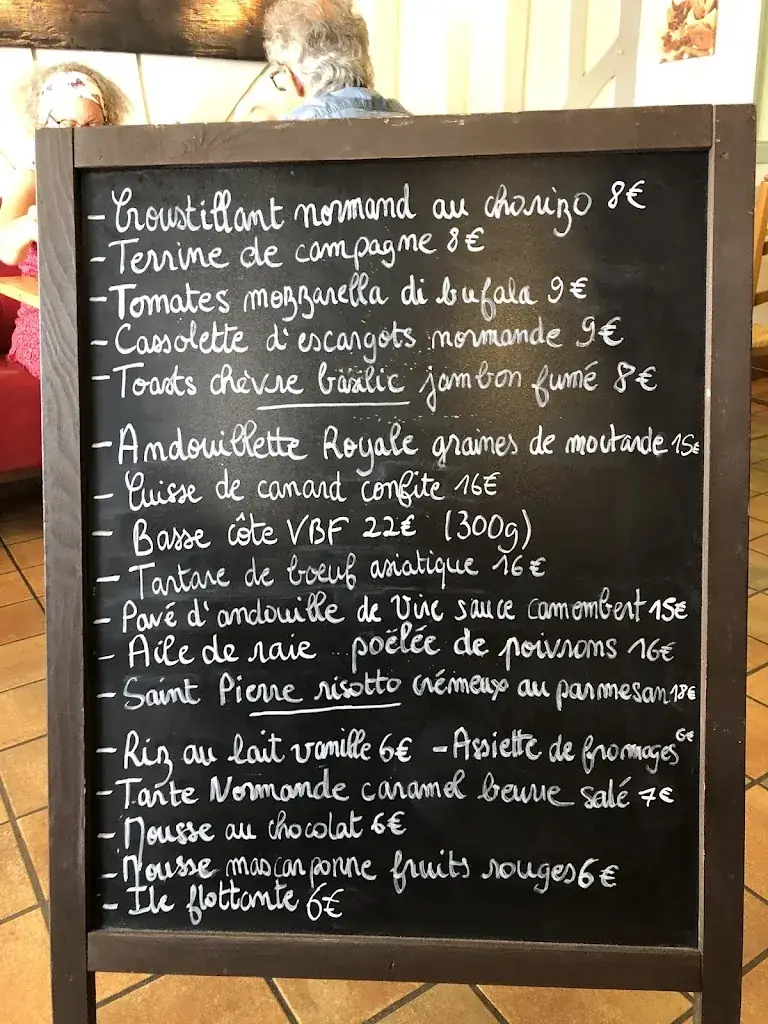 - Croustillant normand au chorizo 8€
- Terrine de campagne 8€
- Tomates mozzarella di bufala 9€
- Cassolette d'escargots normande 9€
- Toasts chèvre basilic jambon fumé 8€
- Andouillette Royale graines de moutarde 15€
- Cuisse de canard confite 16€
- Basse côte VBF 22€ (300g)
- Tartare de boeuf asiatique 16€
- Pavé d'andouille de Vire sauce camembert 15€
- Aile de raie poëlée de poivrons 16€
- Saint Pierre risotto crémeux au parmesan 18€
- Riz au lait vanille 6€ - Assiette de fromages 6€
- Tarte Normande caramel beurre salé 7€
- Mousse au chocolat 6€
- Mousse mascarponne fruits rouges 6€
- Ile flottante 6€